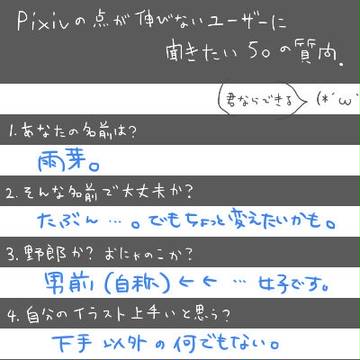 Pixivの点が伸びないユーザーに
聞きたい50の質問.
君ならできる (*´ω`
1.あなたの名前は?
雨芽。
2.そんな名前で大丈夫か?
たぶん…。でもちょっと変えたいかも。
3.野郎か?おにゃのこか?
男前(自称)←←…女子です。
4.自分のイラスト上手いと思う?
下手以外の何でもない。